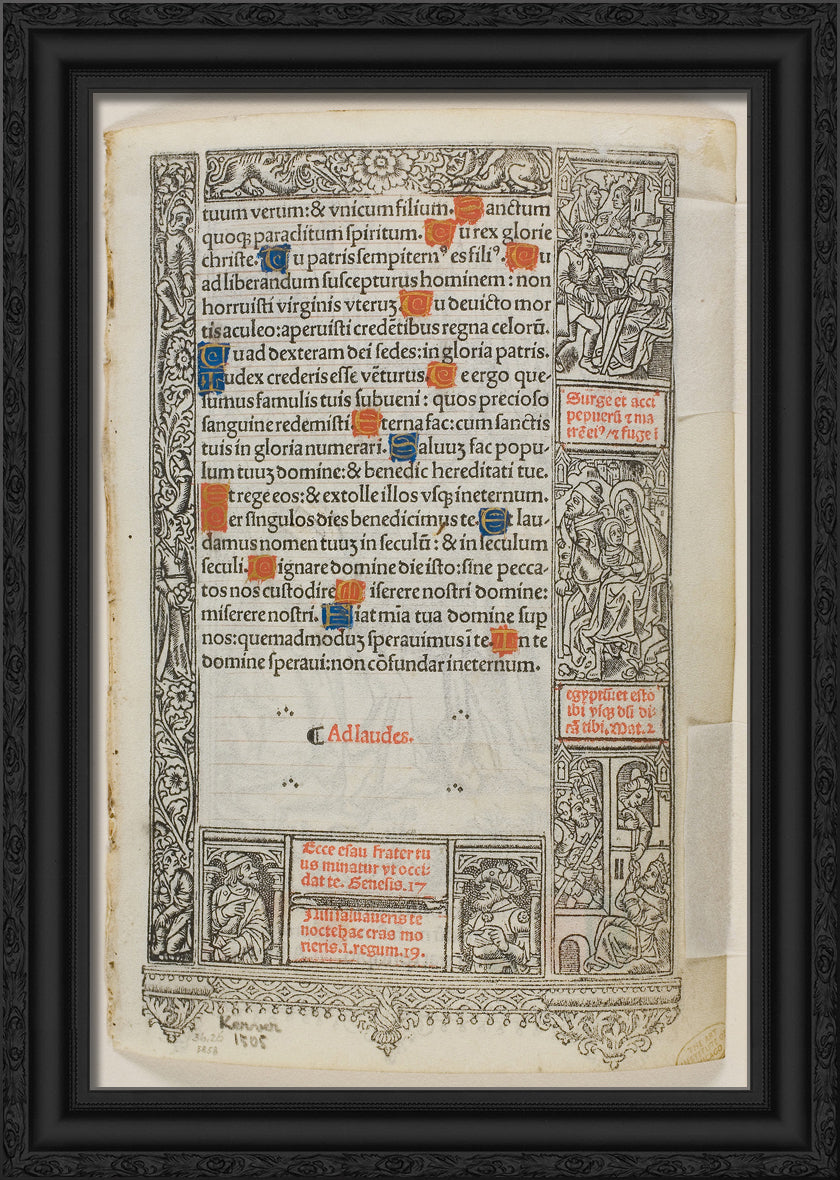 tuum verum:& vnicum filium. Sanctum
quoqꝫ paraclitum spiritum. Tu rex glorie
christe. Tu patris sempiternꝰ es filiꝰ. Tu
ad liberandum suscepturus hominem: non
horruisti virginis vteruȝ Tu deuicto mor
tis aculeo:aperuisti credētibus regna celorū.
Tu ad dexteram dei sedes:in gloria patris.
Iudex crederis esse vēturus. Te ergo que-
sumus famulis tuis subueni: quos precioso
sanguine redemisti Eterna fac:cum sanctis
tuis in gloria numerari. Saluuȝ fac popu-
lum tuuȝ domine:& benedic hereditati tue.
Et rege eos:& extolle illos vsqꝫ ineternum.
Per singulos dies benedicimus te. Et lau-
damus nomen tuuȝ in seculū: & in seculum
seculi. Dignare domine die isto:sine pecca-
tos nos custodire Miserere nostri domine:
miserere nostri. Fiat mīa tua domine sup
nos:quemadmoduȝ sperauimus ī te. In te
domine speraui:non cōfundar ineternum.
Ad laudes.
Surge et acci
pe puerū ⁊ ma
trē eiꝰ/⁊ fuge ī
egyptū:et esto
ibi vsqꝫ dū di-
cā tibi. Mat. 2
Ecce esau frater tu
us minatur vt occi-
dat te. Genesis. 17
Nisi saluaueris te
nocte hac cras mo
rieris. 1. regum. 19.
Kerver
1505
36.26